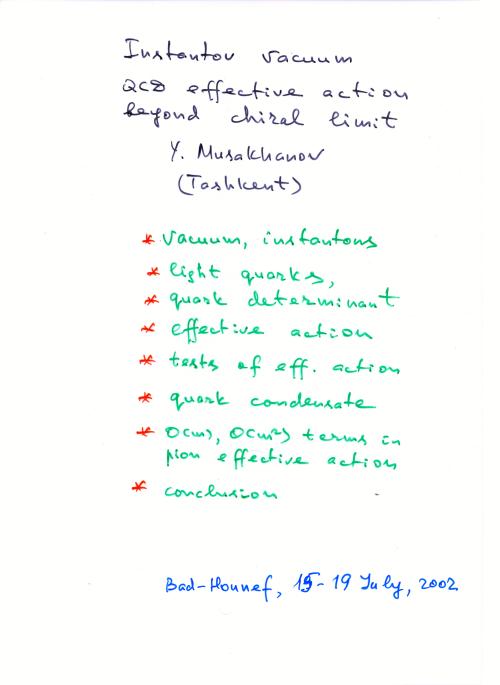 Instanton vacuum
QCD effective action
beyond chiral limit
Y. Musakhanov
(Tashkent)
* vacuum, instantons
* light quarks,
* quark determinant
* effective action
* tests of eff. action
* quark condensate
* O(m), O(m²) terms in
pion effective action
* conclusion
Bad-Honnef, 15-19 July, 2002